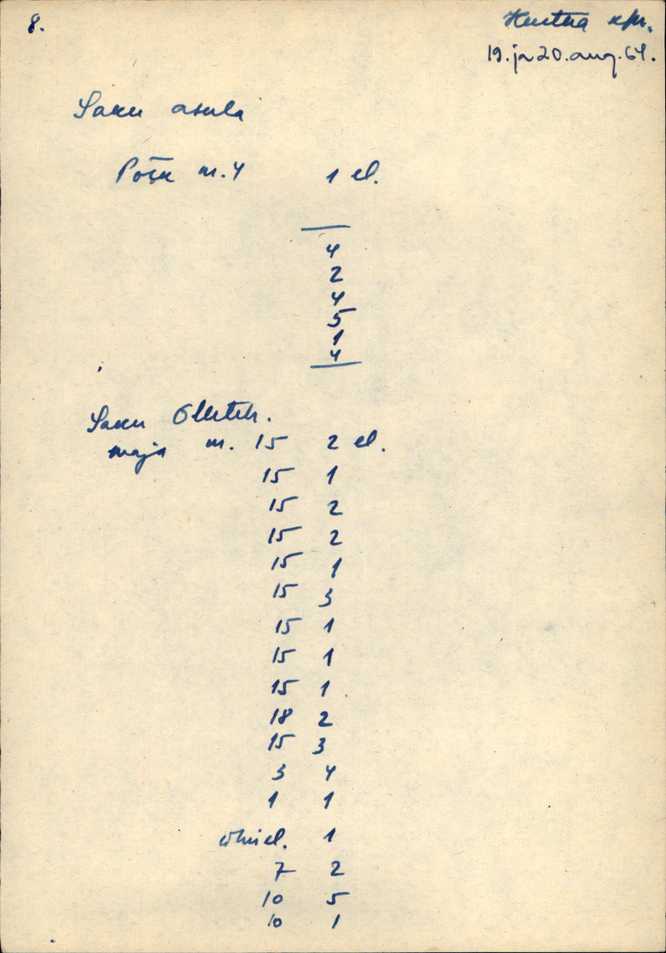 8.
Kustna
19. ja 20. aug. 64.
Saku asula
Põik m. 4 1 el.
4
2
4
5
1
4
Saku Õlleteh.
maja m. 15 2 el.
15 1
15 2
15 2
15 1
15 3
15 1
15 1
15 1
18 2
15 3
3 4
1 1
ühisel. 1
7 2
10 5
10 1